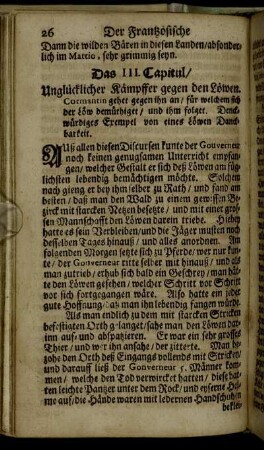 26 Der Frantzösische
Dann die wilden Bären in diesen Landen/ absonder-
lich im Martio, sehr grimmig seyn.
Das III. Capitul/
Unglücklicher Kämpffer gegen den Löwen.
Cormantin gehet gegen ihn an/ für welchem sich
der Löw demütiget/ und ihm folget. Denck-
würdiges Exempel von eines Löwen Danck-
barkeit.
Auß allen diesen Discursen kunte der Gouverneur
noch keinen genugsamen Unterricht empfan-
gen/ welcher Gestalt er sich deß Löwen am füg-
lichsten lebendig bemächtigen möchte. Solchem
nach gieng er bey ihm selber zu Rath/ und fand am
besten/ daß man den Wald zu einem gewissen Be-
zirck mit starcken Netzen besetzte/ und mit einer gros-
sen Mannschafft den Löwen darein triebe. Hiebey
hatte es sein Verbleiben/ und die Jäger musten noch
desselben Tages hinauß/ und alles anordnen. Am
folgenden Morgen setzte sich zu Pferde/ wer nur kun-
te/ der Gouverneur ritte selber mit hinauß/ und als
man zutrieb/ erhub sich bald ein Geschrey/ man hät-
te den Löwen gesehen/ welcher Schritt vor Schritt
vor sich fortgegangen wäre. Also hatte ein jeder
gute Hoffnung/ daß man ihn lebendig fangen würde.
Als man endlich zu dem mit starcken Stricken
befestigten Orth gelanget/ sahe man den Löwen dar-
inn auf- und abspatzieren. Er war ein sehr grosses
Thier/ und wer ihn ansahe/ der zitterte. Man be-
zohe den Orth deß Eingangs vollends mit Stricken/
und darauff ließ der Gouverneur 5. Männer kom-
men/ welche den Tod verwircket hatten/ diese hat-
ten leichte Pantzer unter dem Rock/ und eyserne Hel-
me auf/ die Hände waren mit ledernen Handschuhen